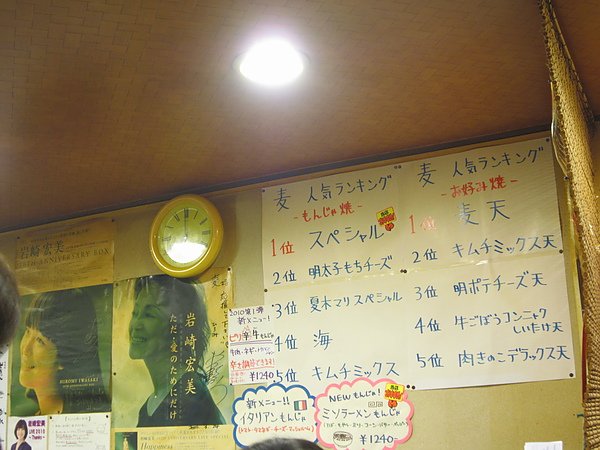 麦 人気ランキング
-もんじゃ焼-
1位 スペシャル
2位 明太子もちチーズ
3位 夏木マリスペシャル
4位 海
5位 キムチミックス
麦 人気ランキング
-お好み焼-
1位 麦天
2位 キムチミックス天
3位 明ポテチーズ天
4位 牛ごぼうコンニャク
しいたけ天
5位 肉きのこデラックス天
岩崎宏美
ANNIVERSARY BOX
HIROMI IWASAKI
岩崎宏美
ただ・愛のためにだけ
2010第1弾
新メニュー!
ピリ辛牛もんじゃ
¥1240
新メニュー!!
イタリアンもんじゃ
NEWもんじゃ!
ミソラーメンもんじゃ
¥1240
岩崎宏美
LIVE 2010
Thanks
Happiness